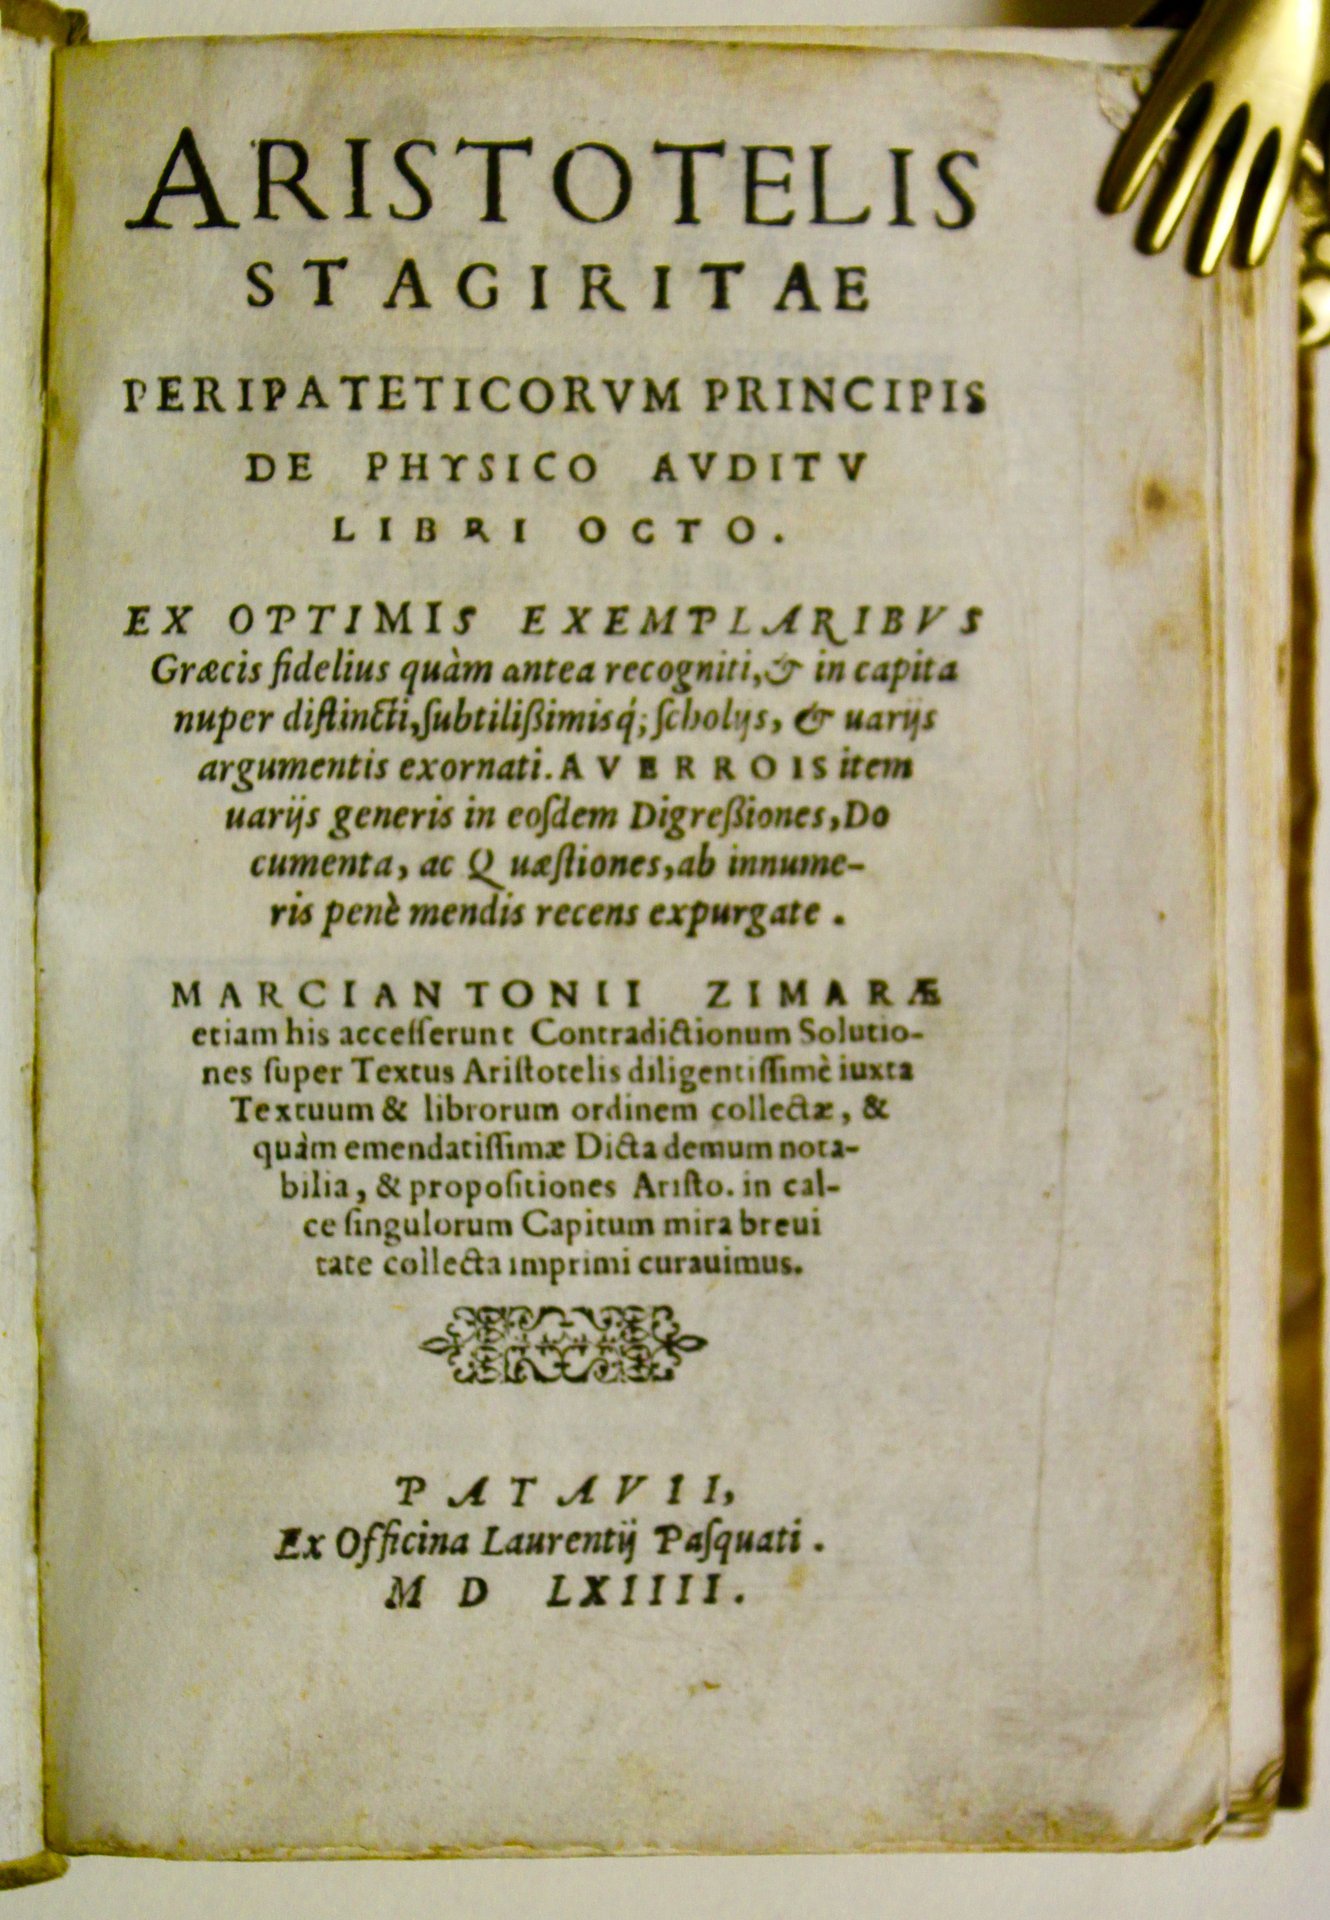 ARISTOTELIS
STAGIRITAE
PERIPATETICORVM PRINCIPIS
DE PHYSICO AVDITV
LIBRI OCTO.
EX OPTIMIS EXEMPLARIBVS
Græcis fidelius quàm antea recogniti, & in capita
nuper distincti, ſubtilißimisq́; ſcholijs, & uarijs
argumentis exornati. AVERROIS item
uarijs generis in eoſdem Digreßiones, Do
cumenta, ac Quæſtiones, ab innume-
ris penè mendis recens expurgate.
MARCIANTONII ZIMARÆ
etiam his acceſſerunt Contradictionum Solutio-
nes ſuper Textus Ariſtotelis diligentiſſimè iuxta
Textuum & librorum ordinem collectæ, &
quàm emendatiſſimæ Dicta demum nota-
bilia, & propoſitiones Ariſto. in cal-
ce ſingulorum Capitum mira breui
tate collecta imprimi curauimus.
PATAVII,
Ex Officina Laurentij Paſquati.
M D LXIIII.